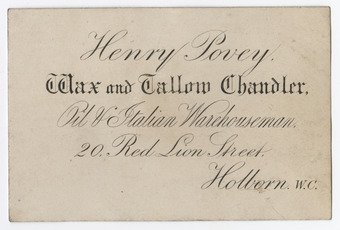 Henry Povey.
Wax and Tallow Chandler,
Oil & Italian Warehouseman,
20, Red Lion Street.
Holborn. W.C.